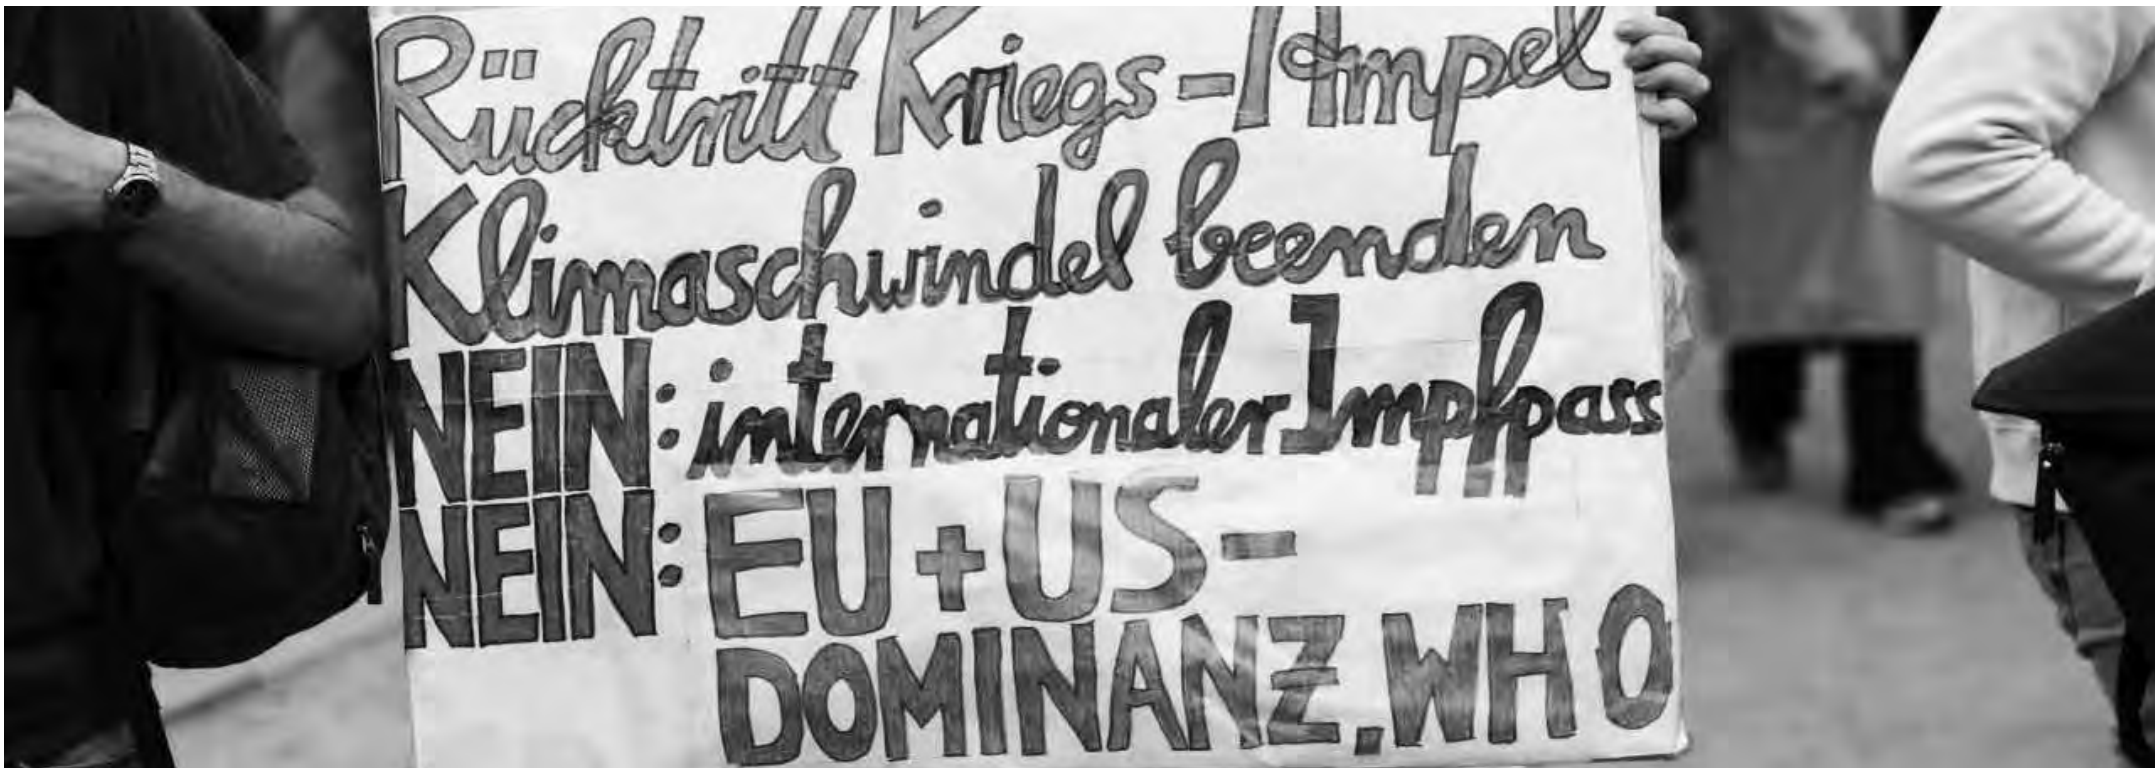 Rücktritt Kriegs-Ampel
Klimaschwindel beenden
NEIN: internationaler Impfpass
NEIN: EU + US-
DOMINANZ, WHO